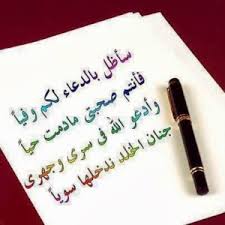 سأظل بالدعاء لكم وفياً
فأنتم صحبتي مادمت حياً
وأدعو الله في سري وجهري
جنان الخلد ندخلها سوياً